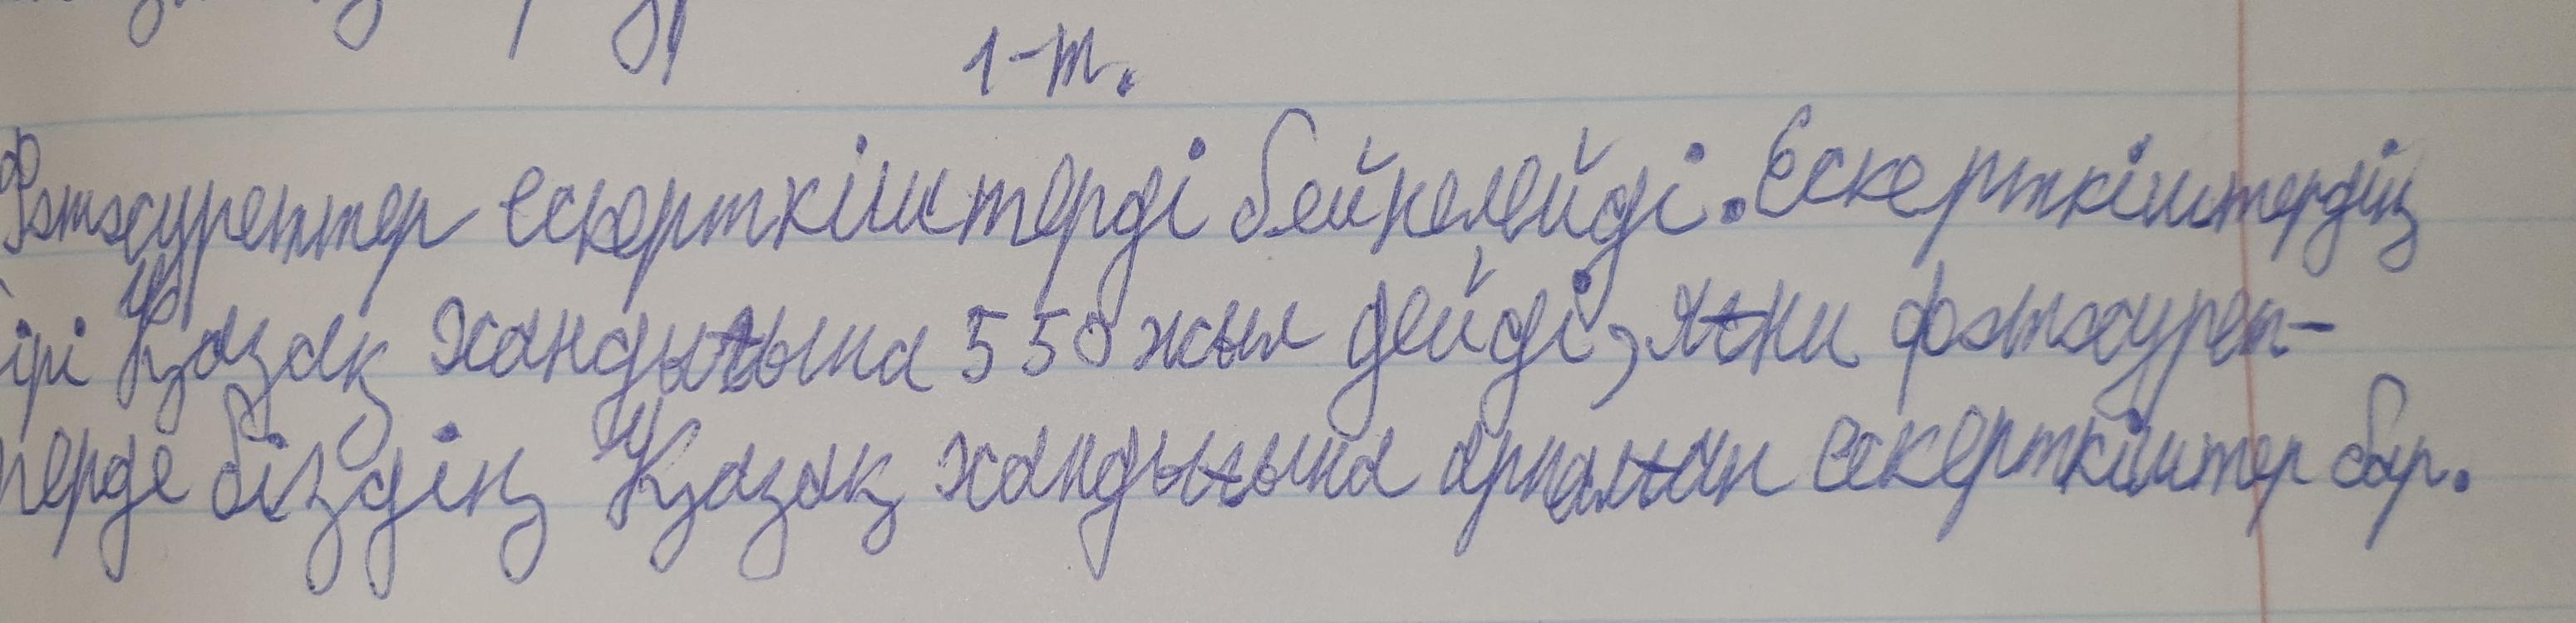 1-т.
Фотосуреттер ескерткіштерді бейнелейді. Ескерткіштердің
ірі Қазақ хандығына 550 жыл дейді, яғни фотосурет-
терде біздің Қазақ хандығына арналған ескерткіштер бар.